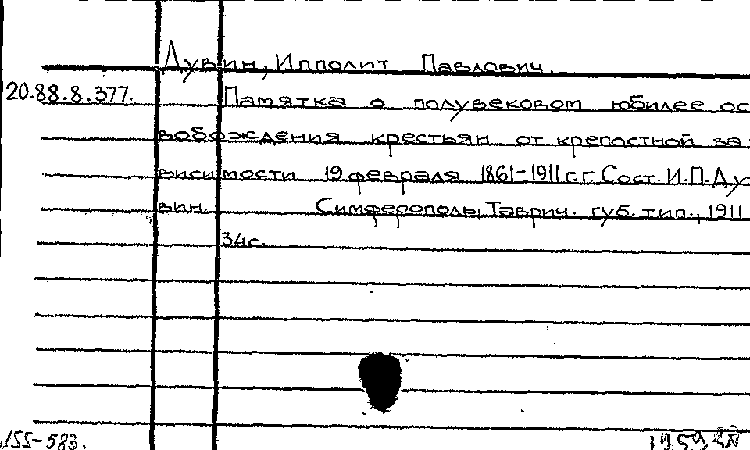 Дувин, Ипполит Павлович.
20.88.8.377. Памятка о полувековом юбилее ос
вобождения крестьян от крепостной за
висимости 19 февраля 1861-1911 г.г. Сост. И.П. Ду
вин. Симферополь, Таврич. губ. тип., 1911
34с.
155-583.